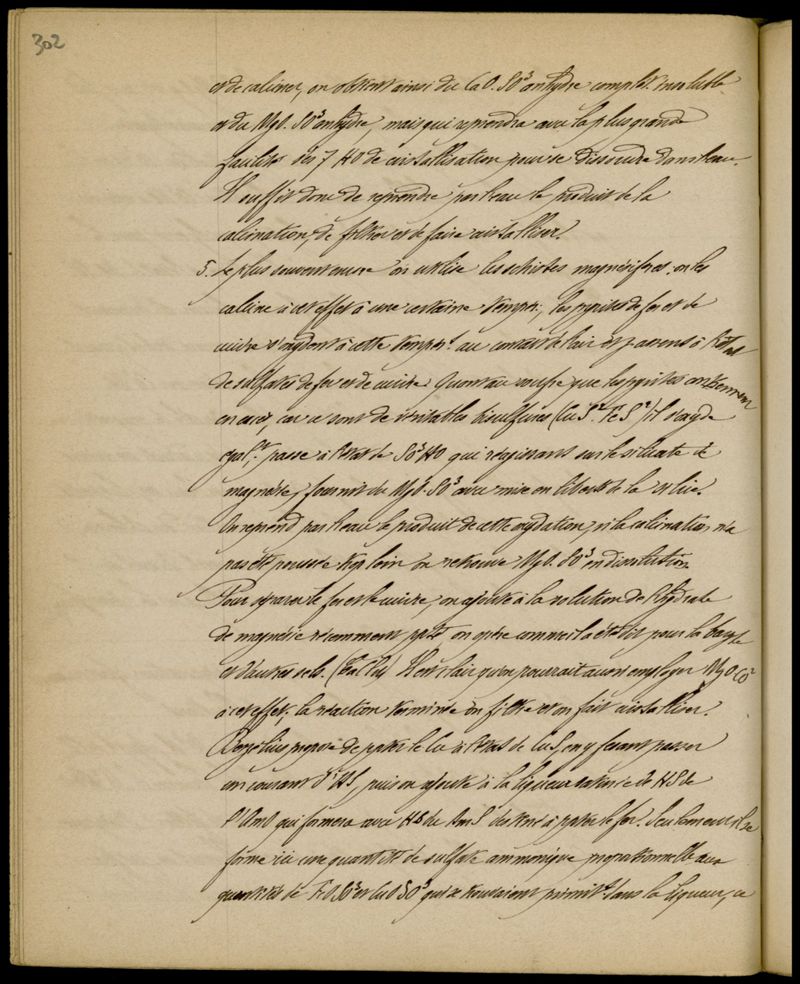 302
et de calciner, on obtient ainsi du CaO. SO³ anhydre complet. insoluble
et du MgO. SO³ anhydre, mais qui reprendra avec la plus grande
facilité ses 7 HO de cristallisation pour se dissoudre dans l'eau.
Il suffit donc de reprendre par l'eau le produit de la
calcination, de filtrer et de faire cristalliser.
5. Le plus souvent encore on utilise les schistes magnésifères. on les
calcine à cet effet à une certaine tempér., les pyrites de fer et de
cuivre s'oxydent à cette tempér. au contact de l'air et passent à l'état
de sulfates de fer et de cuivre. Quant au soufre que les pyrites contiennent
en excès, car ce sont de véritables bisulfures (CuS². FeS²) il s'oxyde
égal.t passe à l'état de SO³HO qui réagissant sur le silicate de
magnésie, fournit du MgO. SO³ avec mise en liberté de la silice.
On reprend par l'eau le produit de cette oxydation, si la calcination n'a
pas été poussée trop loin on retrouve MgO. SO³ en dissolution.
Pour séparer le fer et le cuivre, on ajoute à la solution de l'hydrate
de magnésie récemment ppté, on opère comme il a été dit pour la baryte
et d'autres sels. Il est clair qu'on pourrait aussi employer MgO CO²
à cet effet; la réaction terminée on filtre et on fait cristalliser.
Berzélius propose de ppter le Cu à l'état de CuS, en y faisant passer
un courant d'HS, puis on ajoute à la liqueur saturée de HS de
l'AmO qui formera avec HS du AmS destiné à ppter le fer. Seulement il se
forme ici une quantité de sulfate ammonique proportionnelle aux
quantités de FeO SO³ et CuO SO³ qui se trouvaient primit.t dans la liqueur, ce